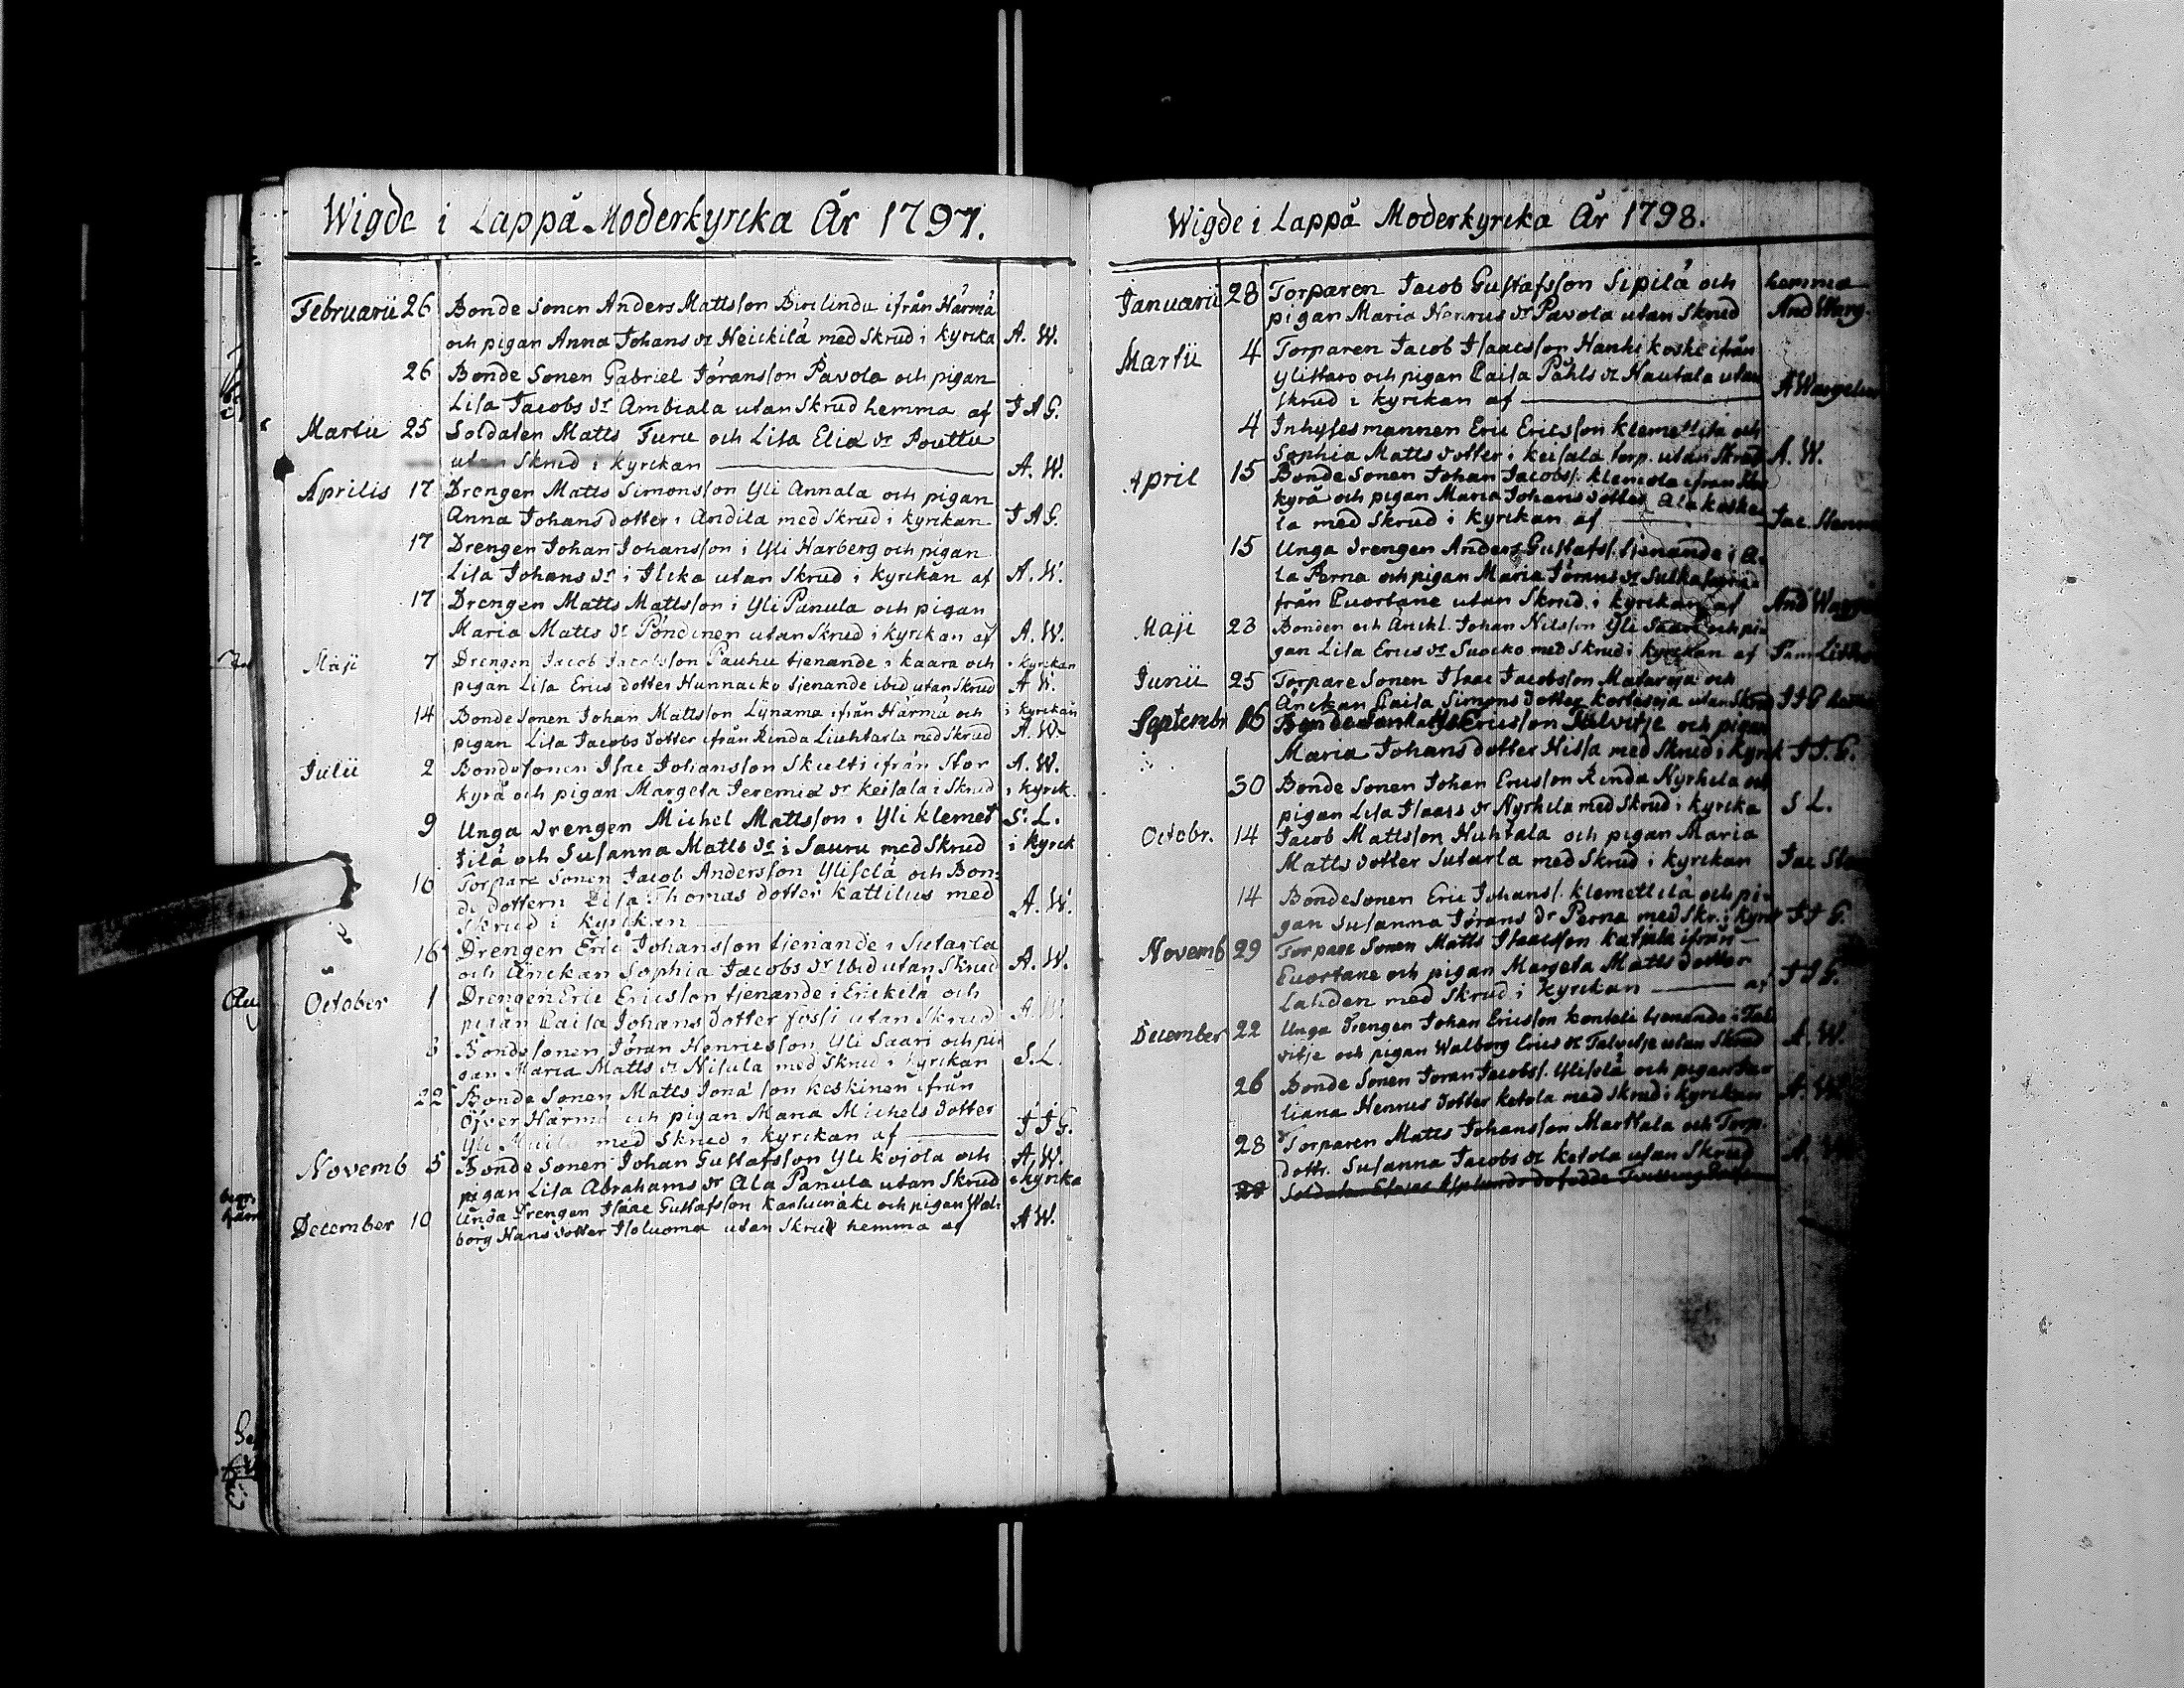 Wigde i Lappå Moderkyrcka År 1797.
Februarii 26 Bonde Sonen Anders Mattsson Birilinda ifrån Härmä
och pigan Anna Johans dr Heickilä med Skrud i kyrcka A. W.
26 Bonde Sonen Gabriel Jöransson Pavola och pigan
Lisa Jacobs dr Ambiala utan Skrud hemma af J A G.
Martii 25 Soldaten Matts Furu och Lisa Eliæ dr Pouttu
utan Skrud i kyrckan A. W.
Aprilis 17 Drengen Matts Simonsson Yli Annala och pigan
Anna Johans dotter i Andila med Skrud i kyrckan J A G.
17 Drengen Johan Johansson i Yli Harberg och pigan
Lisa Johans dr i Ilcka utan Skrud i kyrckan af A. W.
17 Drengen Matts Mattsson i Yli Panula och pigan
Maria Matts dr Pöndinen utan Skrud i kyrckan af A. W.
Maji 7 Drengen Jacob Jacobsson Pauhu tjenande i kaara och i kyrckan
pigan Lisa Erics dotter Hunnacko tjenande ibid utan Skrud A W.
14 Bonde Sonen Johan Mattsson Lynama ifrån Härmä och i kyrckan
pigan Lisa Jacobs dotter ifrån Rinda Liuhtarla med Skrud A. W.
Julii 2 Bondesonen Isac Johansson Skulti ifrån Stor A. W.
kyrå och pigan Margeta Jeremiæ dr keisala i Skrud i kyrck.
9 Unga drengen Michel Mattsson i Yli klemet S. L.
tilä och Susanna Matts dr i Sauru med Skrud i kyrck
16 Torpare Sonen Jacob Andersson Yliselä och Bon:
de dottern Lisa Thomas dotter kattilus med A. W.
Skrud i kyrckan
16 Drengen Eric Johansson tjenande i Sutarla
och Änckan Sophia Jacobs dr ibid utan Skrud A. W.
October 1 Drengen Eric Ericsson tjenande i Erickilä och
pigan Caisa Johans dotter fossi utan Skrud A. W.
Bondesonen Jöran Henricsson Yli Saari och pi
gan Maria Matts dr Nisula med Skrud i kyrckan S. L.
22 Bonde Sonen Matts Jonæ son keskinen ifrån
Öfver Härmä och pigan Maria Michels dotter
Yli med Skrud i kyrckan af J J G.
Novemb 5 Bonde Sonen Johan Gustafsson Yli kojola och A. W.
pigan Lisa Abrahams dr Ala Panula utan Skrud i kyrcka
December 10 Unda Drengen Isaac Gustafsson karlumäki och pigan Wal:
borg Hans dotter Isoluoma utan Skrud hemma af A W.
Wigde i Lappå Moderkyrcka År 1798.
Januarii 28 Torparen Jacob Gustafsson Sipilä och hemma
pigan Maria Henrics dr Pavola utan Skrud And Warg.
Martii 4 Torparen Jacob Isaacsson Hanhikoski ifrån
Ylistaro och pigan Caisa Påhls dr Hautala utan
Skrud i kyrckan af A Wargelin
4 Inhysesmannen Eric Ericsson klemettilä och
Sophia Matts dotter i keisala torp. utan Skrud A. W.
April 15 Bonde Sonen Johan Jacobss. klemola ifrån
kyrå och pigan Maria Johans dotter Ala koske
la med Skrud i kyrckan af Jac.
15 Unga drengen Anders Gustafss. tjenande i A:
la Perna och pigan Maria Jörans dr
från Cuortane utan Skrud i kyrckan af And
Maji 23 Bonden och Änckl. Johan Nilsson Yli Saari och pi
gan Lisa Erics dr Suocko med Skrud i kyrckan af
Junii 25 Torpare Sonen Isaac Jacobsson Mataroja och
Änckan Caisa Simons dotter kortesoja utan Skrud J J G
Septembr 16 Ericsson Talvitje och pigan
Maria Johans dotter Hissa med Skrud i kyrck J J. G.
30 Bonde Sonen Johan Ericsson Rinda Nyrhilä och
pigan Lisa Isaacs dr Nyrhilä med Skrud i kyrcka S L.
Octobr. 14 Jacob Mattsson Huhtala och pigan Maria
Matts dotter Sutarla med Skrud i kyrckan Jac
14 BondeSonen Eric Johanss. klemettilä och pi
gan Susanna Jörans dr Perna med Skr. i kyrck J J G.
Novemb 29 Torpare Sonen Matts Isaacsson katjala ifrån
Cuortane och pigan Margeta Matts dotter
Lahden med Skrud i kyrckan af J J G.
December 22 Unga Drengen Johan Ericsson kontoli tjenande i Tal
vitje och pigan Walborg Erics dr Talvitje utan Skrud A. W.
26 Bonde Sonen Jöran Jacobss. Yliselä och pigan
liana Henrics dotter ketola med Skrud i kyrckan A. W.
28 Torparen Matts Johansson Marttala och Torp.
dottr. Susanna Jacobs dr ketola utan Skrud A. W.